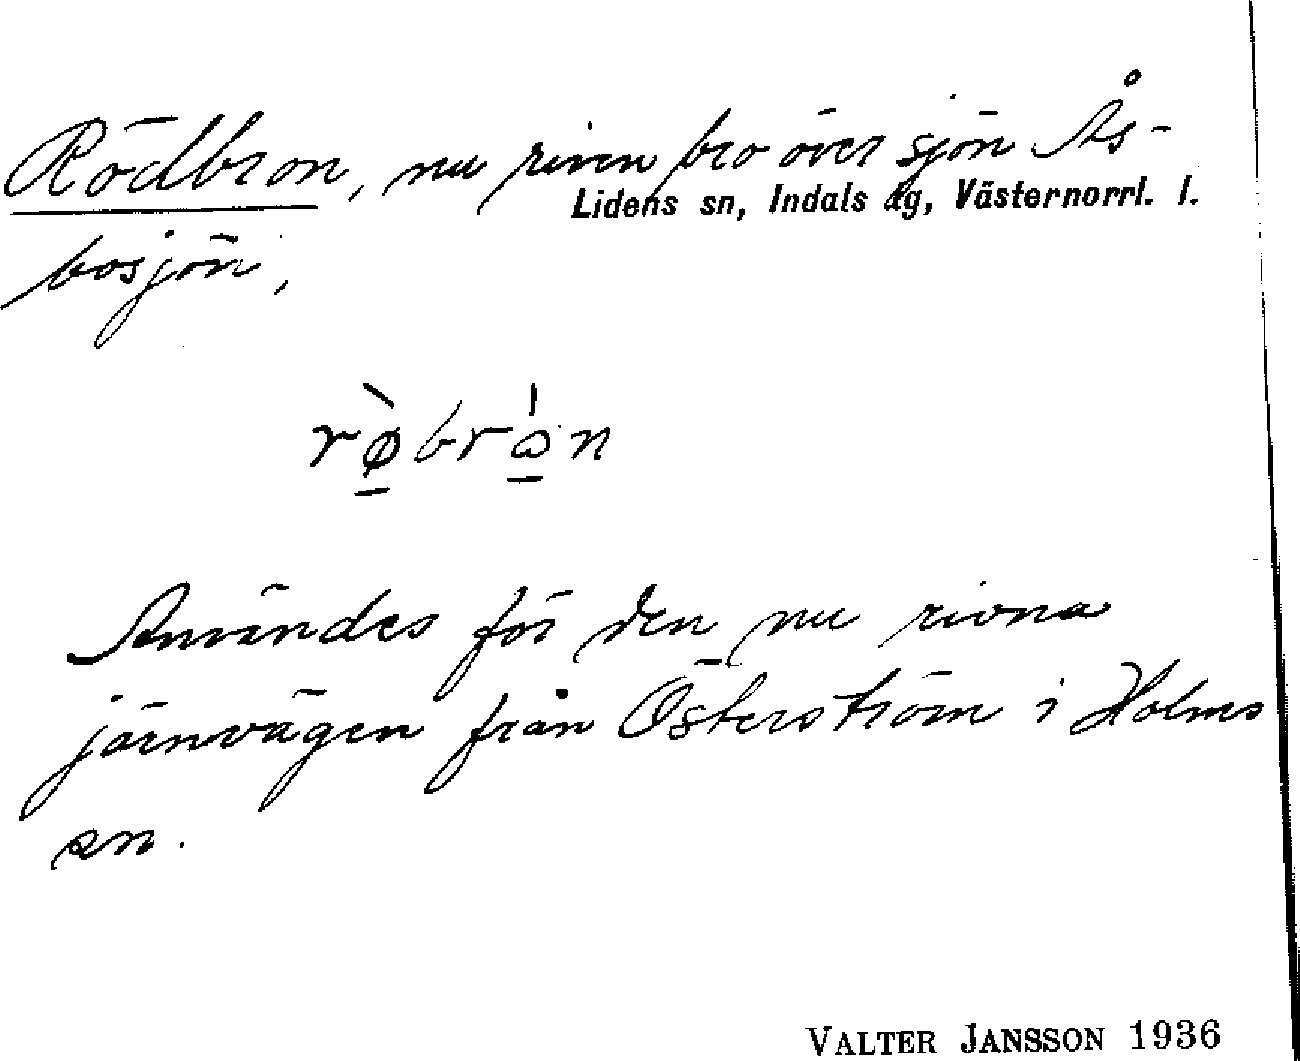 Rödbron, nu riven bro över sjön Ås-
Lidens sn, Indals tg, Västernorrl. l.
bosjön,
rø̀brω̍n
Användes för den nu rivna
järnvägen från Österström i Holms
sn.
VALTER JANSSON 1936